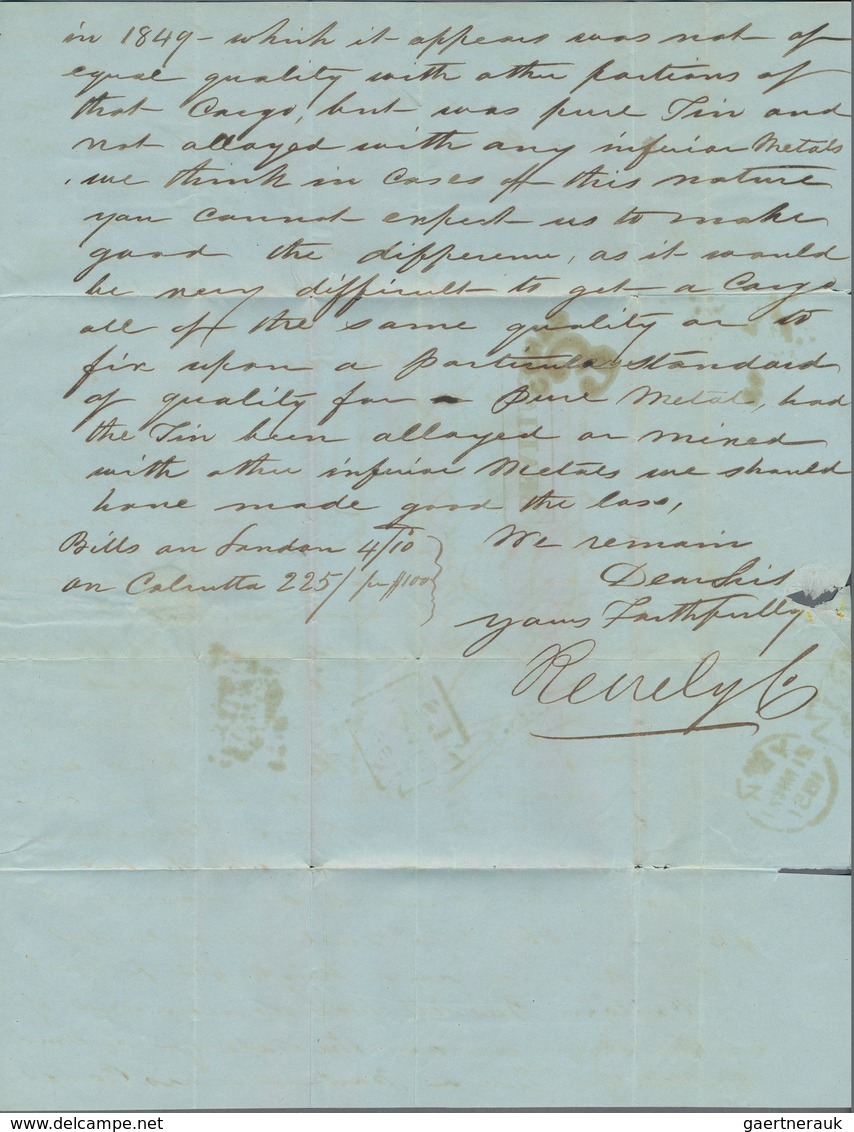 in 1849 - which it appears was not of
equal quality with other portions of
that Cargo, but was pure Tin and
not alloyed with any inferior Metals
, we think in Cases of this nature
you cannot expect us to make
good the difference, as it would
be very difficult to get a Cargo
all of the same quality or to
fix upon a particular standard
of quality for a pure Metal, had
the Tin been alloyed or mixed
with other inferior Metals we should
have made good the loss,
Bills on London 4/10
on Calcutta 225/ per $100
We remain
Dear Sir
yours Faithfully
Revely Co
1851
www.delcampe.net
gaertnerauk